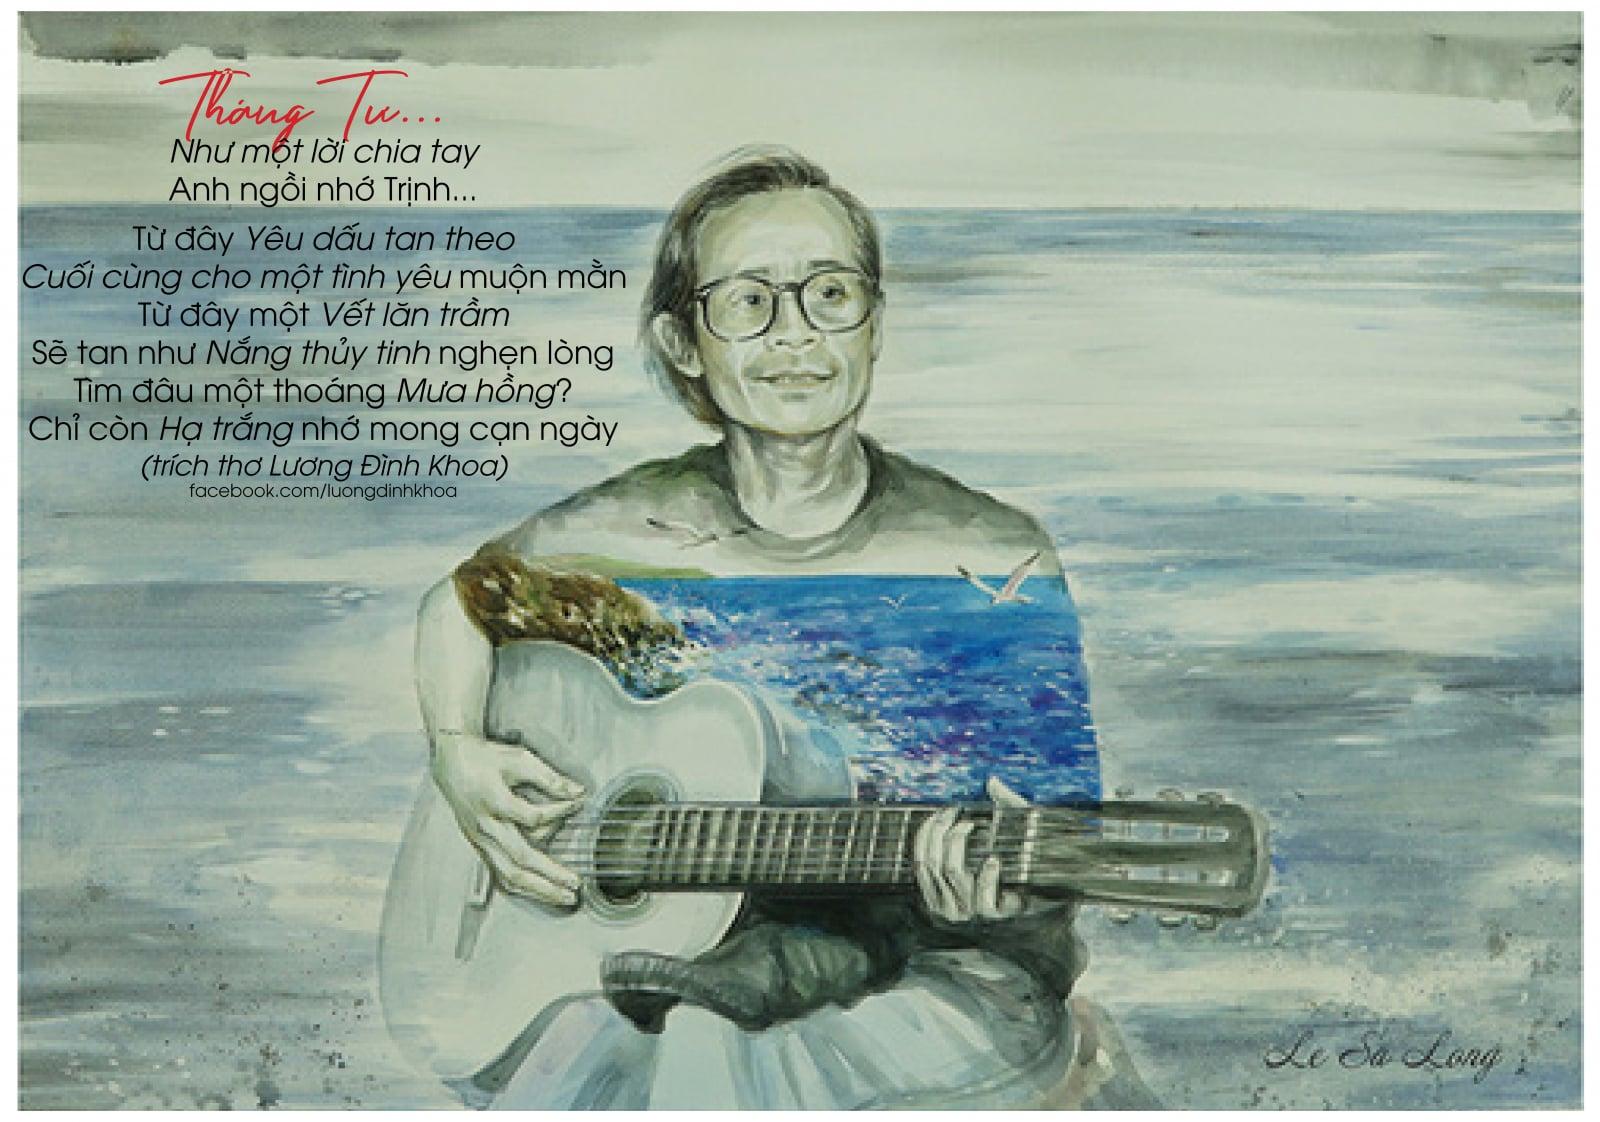 Tháng Tư...
Như một lời chia tay
Anh ngồi nhớ Trịnh...
Từ đây Yêu dấu tan theo
Cuối cùng cho một tình yêu muộn mằn
Từ đây một Vết lăn trầm
Sẽ tan như Nắng thủy tinh nghẹn lòng
Tìm đâu một thoáng Mưa hồng?
Chỉ còn Hạ trắng nhớ mong cạn ngày
(trích thơ Lương Đình Khoa)
facebook.com/luongdinhkhoa
Le Sa Long